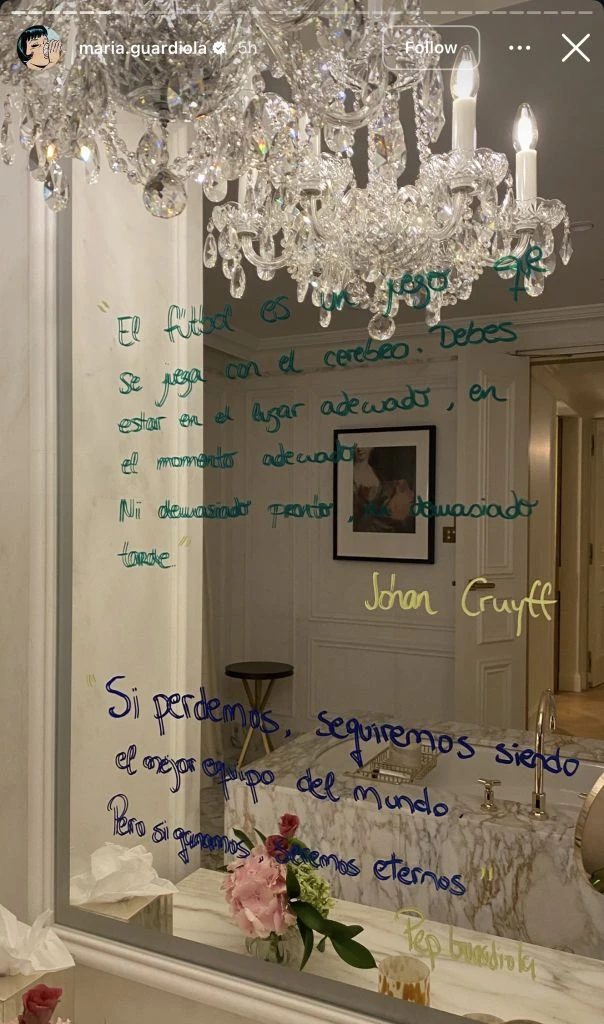 maria.guardiola 5h Follow
"El fútbol es un juego que
se juega con el cerebro. Debes
estar en el lugar adecuado, en
el momento adecuado
Ni demasiado pronto, ni demasiado
tarde."
Johan Cruyff
"Si perdemos, seguiremos siendo
el mejor equipo del mundo.
Pero si ganamos seremos eternos"
Pep Guardiola